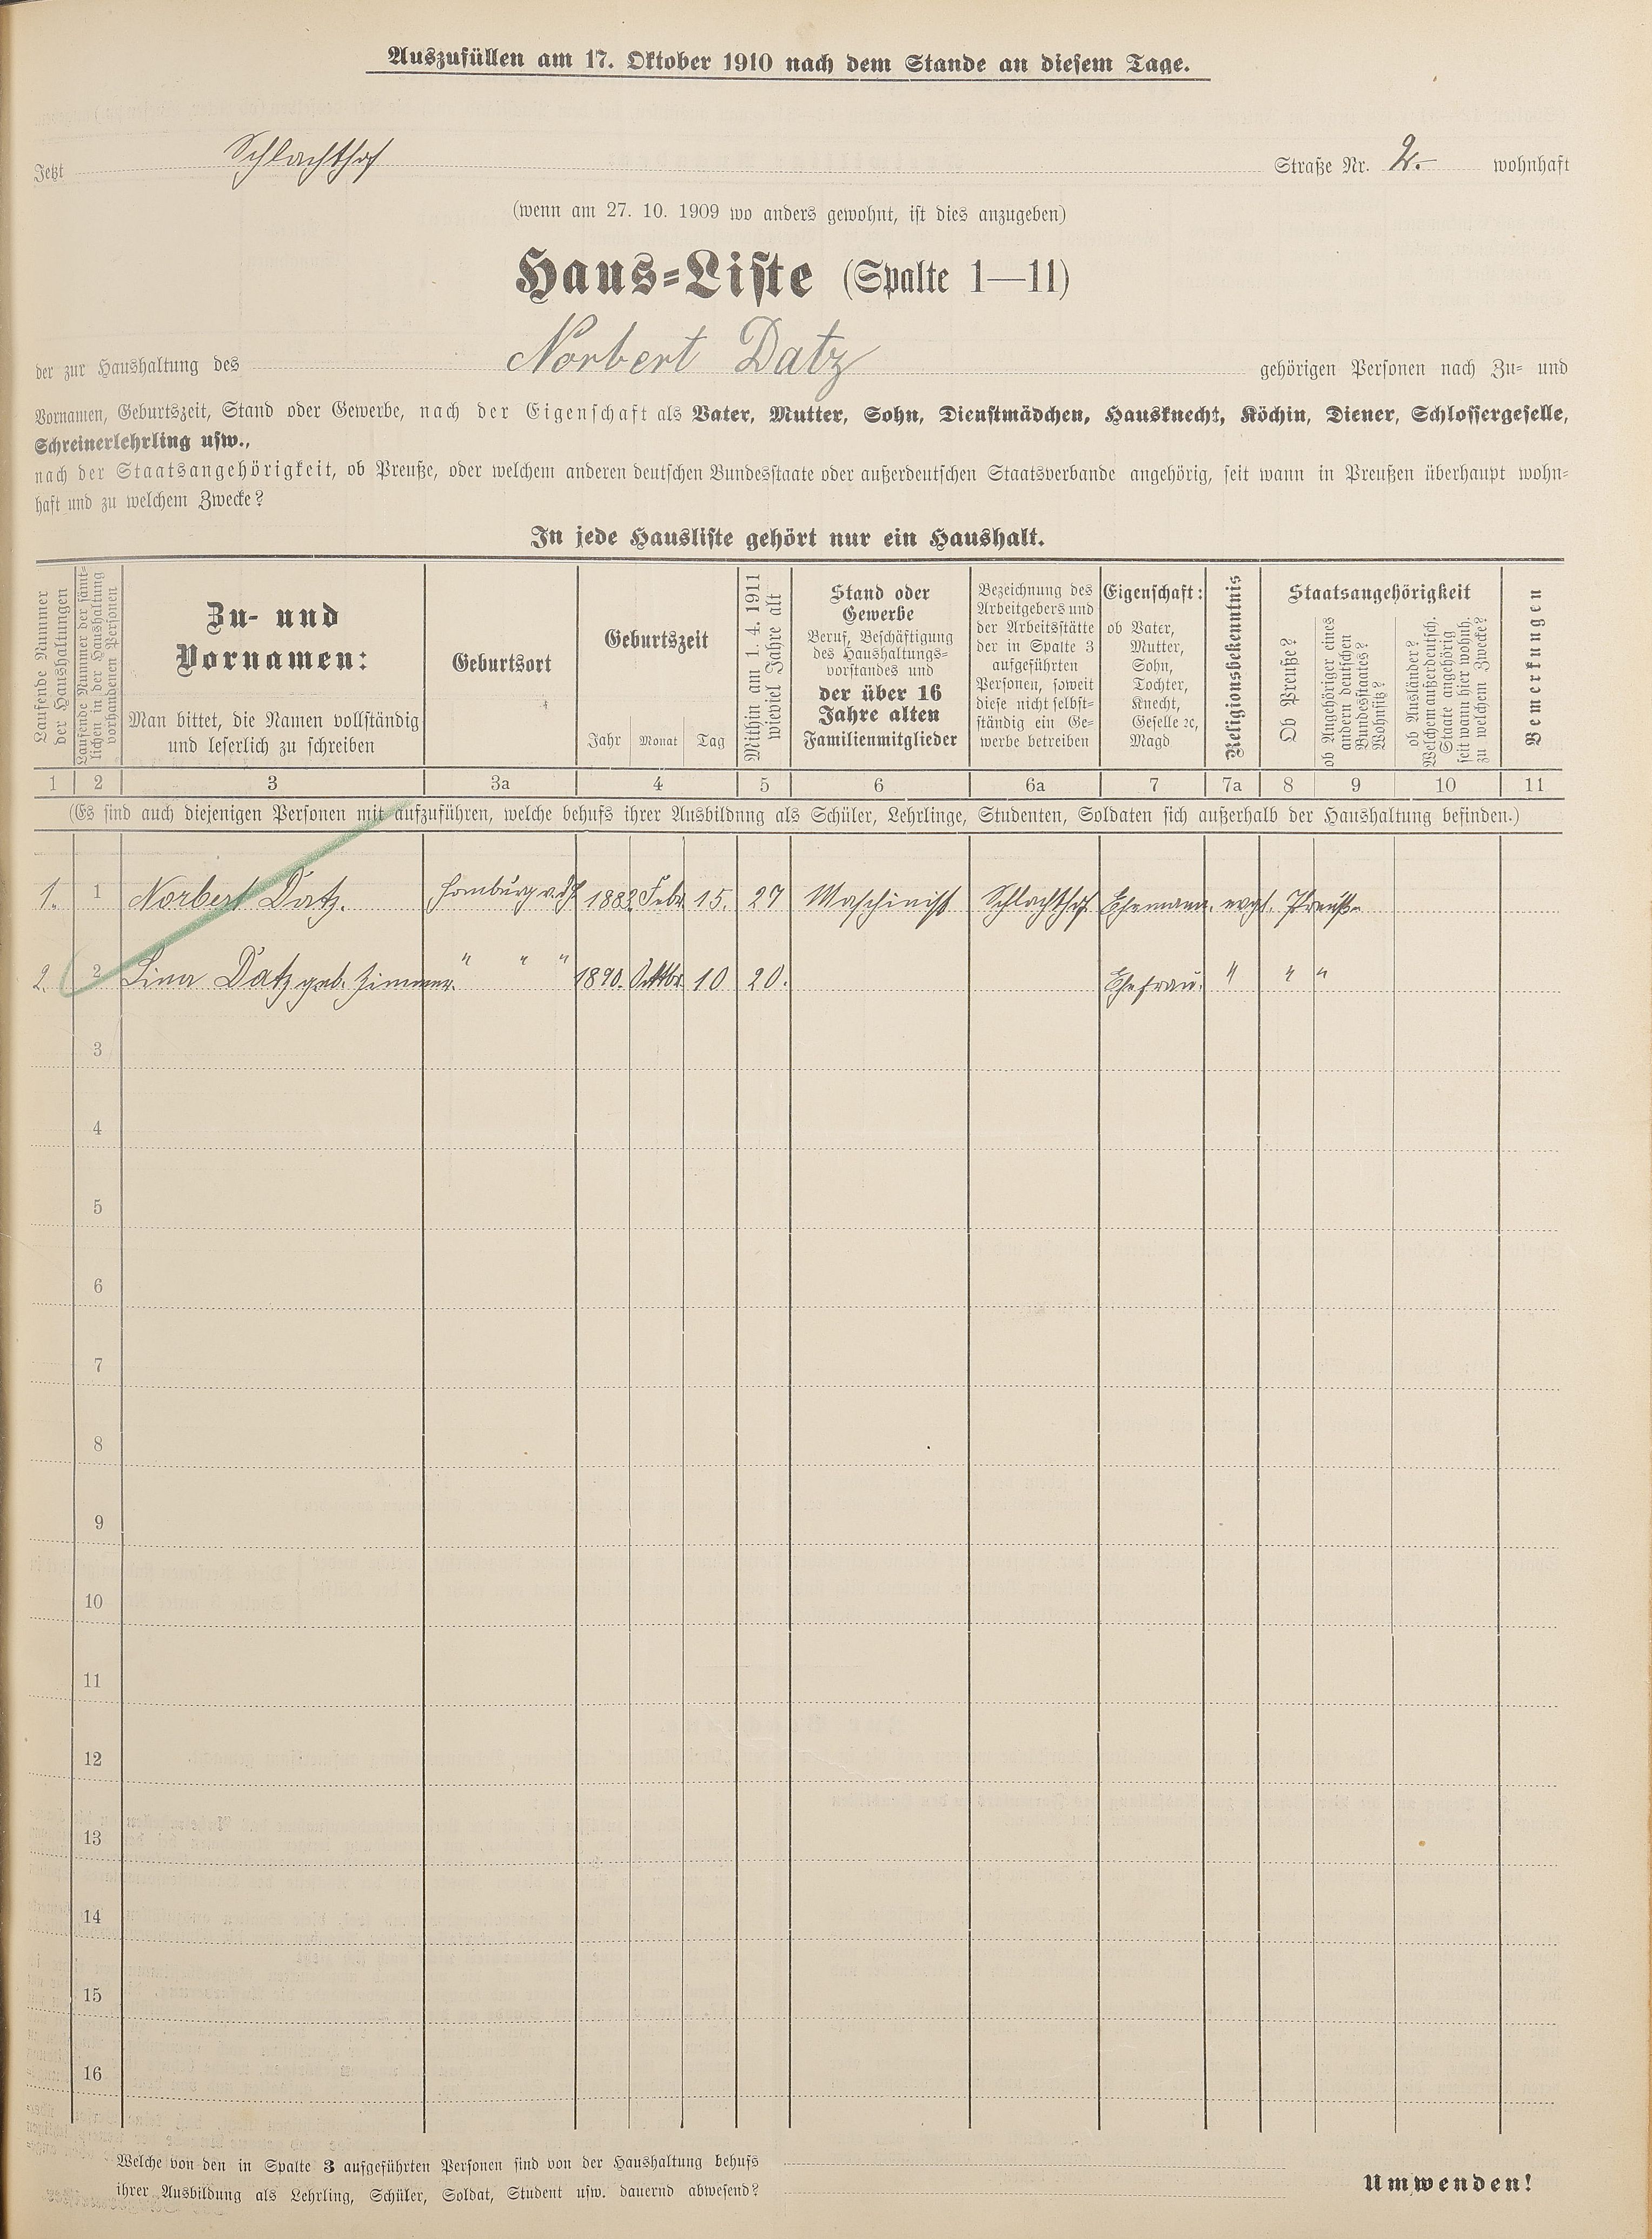 Auszufüllen am 17. Oktober 1910 nach dem Stande an diesem Tage.
Jetzt Schlachthof Straße Nr. 2.- wohnhaft
(wenn am 27. 10. 1909 wo anders gewohnt, ist dies anzugeben)
Haus-Liste (Spalte 1—11)
der zur Haushaltung des Norbert Datz gehörigen Personen nach Zu- und
Vornamen, Geburtszeit, Stand oder Gewerbe, nach der Eigenschaft als Vater, Mutter, Sohn, Dienstmädchen, Hausknecht, Köchin, Diener, Schlossergeselle,
Schreinerlehrling usw.,
nach der Staatsangehörigkeit, ob Preuße, oder welchem anderen deutschen Bundesstaate oder außerdeutschen Staatsverbande angehörig, seit wann in Preußen überhaupt wohn-
haft und zu welchem Zwecke?
In jede Hausliste gehört nur ein Haushalt.
Laufende Nummer
der Haushaltungen
Laufende Nummer der sämt-
lichen in der Haushaltung
vorhandenen Personen
Zu- und
Vornamen:
Man bittet, die Namen vollständig
und leserlich zu schreiben
Geburtsort
Geburtszeit
Jahr Monat Tag
Mithin am 1. 4. 1911
wieviel Jahre alt
Stand oder
Gewerbe
Beruf, Beschäftigung
des Haushaltungs-
vorstandes und
der über 16
Jahre alten
Familienmitglieder
Bezeichnung des
Arbeitgebers und
der Arbeitsstätte
der in Spalte 3
aufgeführten
Personen, soweit
diese nicht selbst-
ständig ein Ge-
werbe betreiben
Eigenschaft:
ob Vater,
Mutter,
Sohn,
Tochter,
Knecht,
Geselle ec,
Magd
Religionsbekenntnis
Staatsangehörigkeit
Ob Preuße?
ob Angehöriger eines
andern deutschen
Bundesstaates?
Wohnsitz?
ob Ausländer?
Welchem außerdeutsch.
Staate angehörig
seit wann hier wohnh.
zu welchem Zwecke?
Bemerkungen
1 2 3 3a 4 5 6 6a 7 7a 8 9 10 11
(Es sind auch diejenigen Personen mit aufzuführen, welche behufs ihrer Ausbildung als Schüler, Lehrlinge, Studenten, Soldaten sich außerhalb der Haushaltung befinden.)
1. 1 Norbert Datz. Homburg v.d.H. 1882 Febr. 15. 27 Maschinist Schlachthof. Ehemann. evgl. Preuße
2. 2 Lina Datz geb. Zimmer. " " " 1890. Oktbr. 10 20. Ehefrau. " " "
3
4
5
6
7
8
9
10
11
12
13
14
15
16
Welche von den in Spalte 3 aufgeführten Personen sind von der Haushaltung behufs
ihrer Ausbildung als Lehrling, Schüler, Soldat, Student usw. dauernd abwesend?
Umwenden!